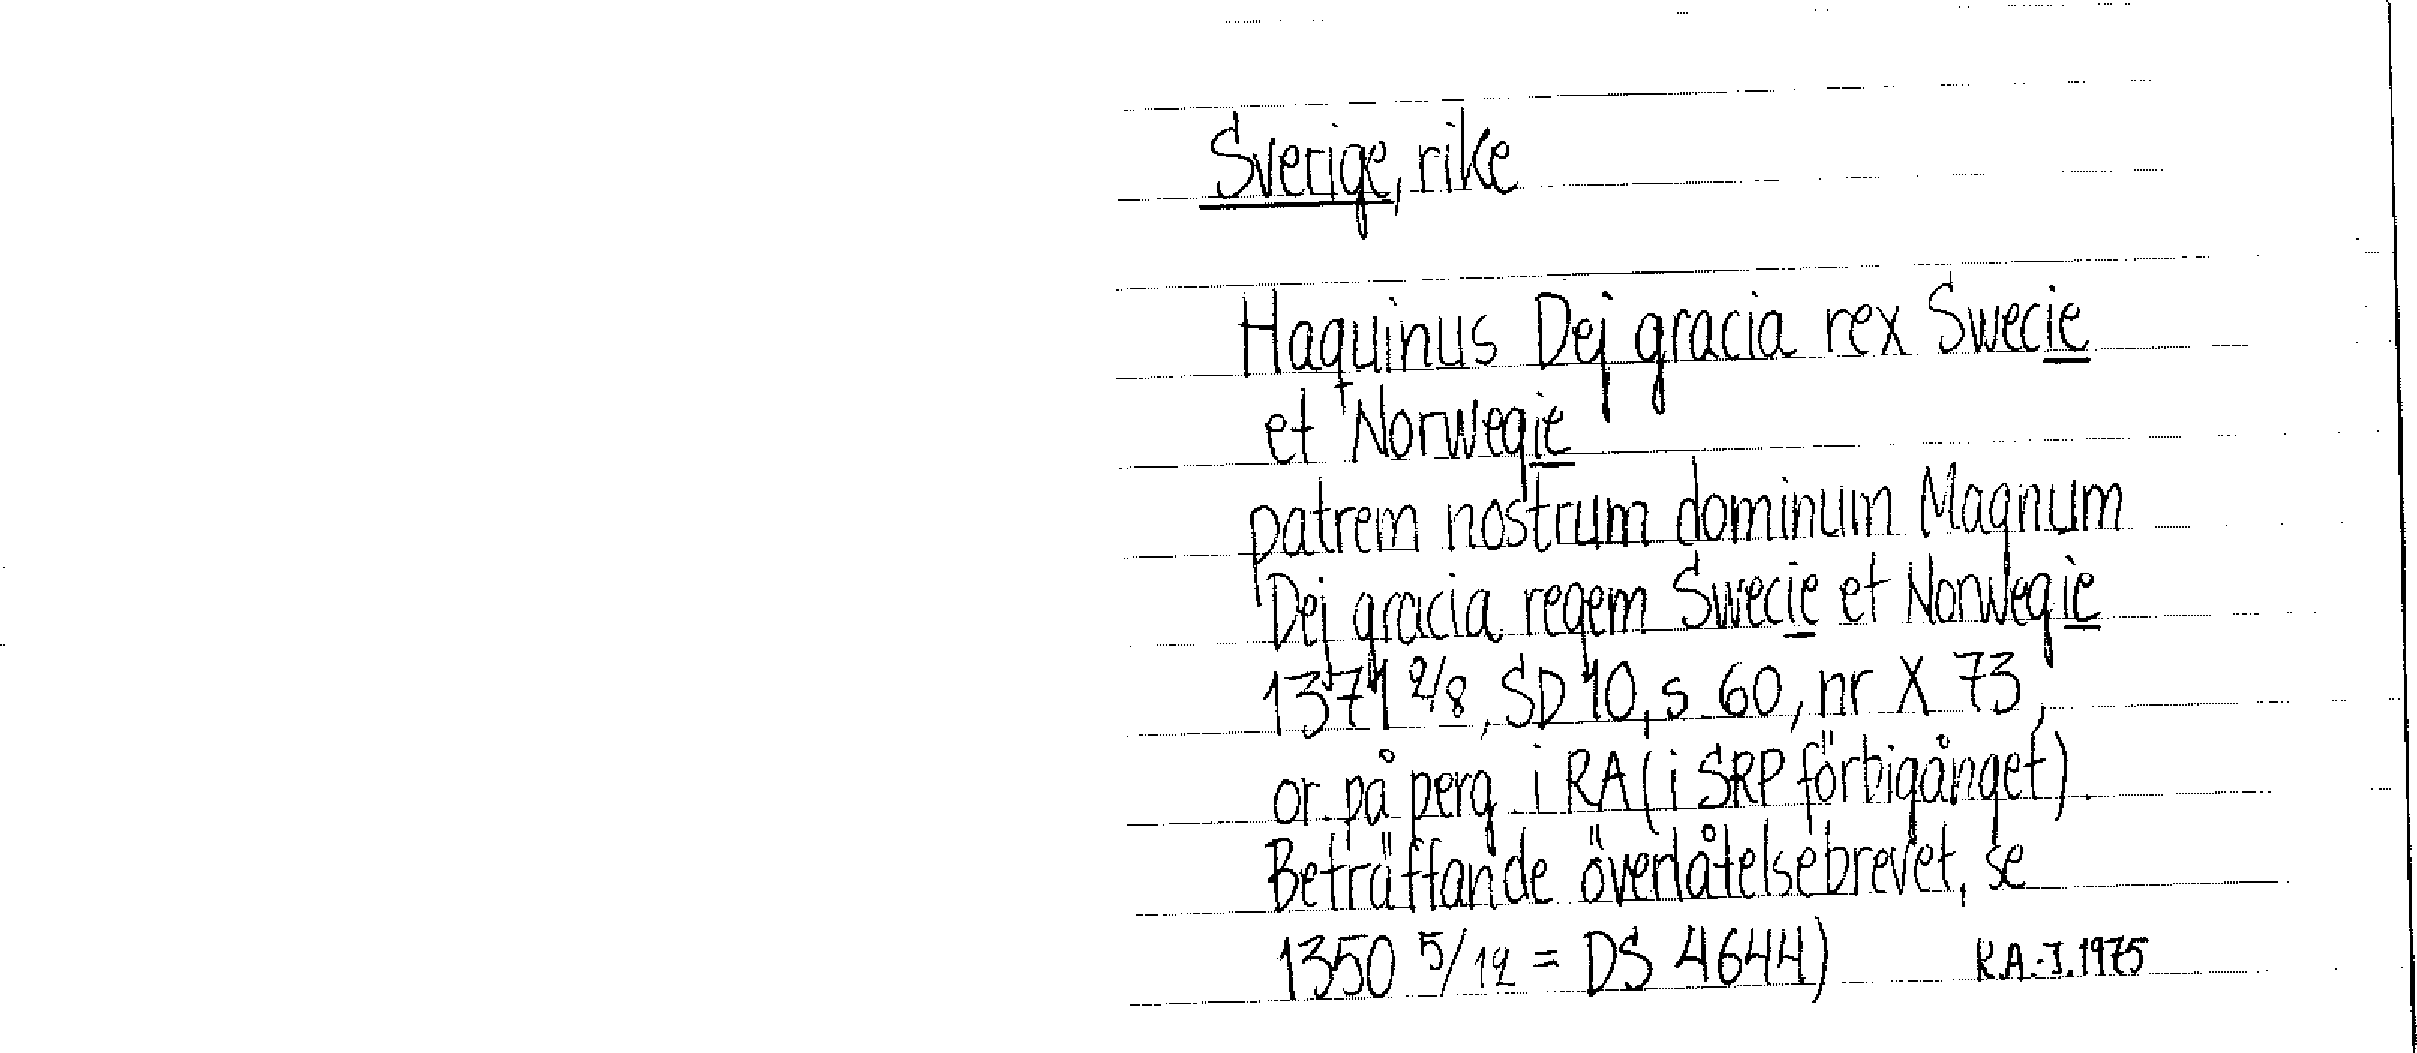 Sverige, rike
Haquinus Dej gracia rex Swecie
et Norwegie
patrem nostrum dominum Magnum
Dej gracia regem Swecie et Norwegie
1371 2/8, SD 10, s 60, nr X 73,
or på perg i RA (i SRP förbigånget).
Beträffande överlåtelsebrevet, se
1350 5/12 = DS 4644)
R.A.-J. 1975